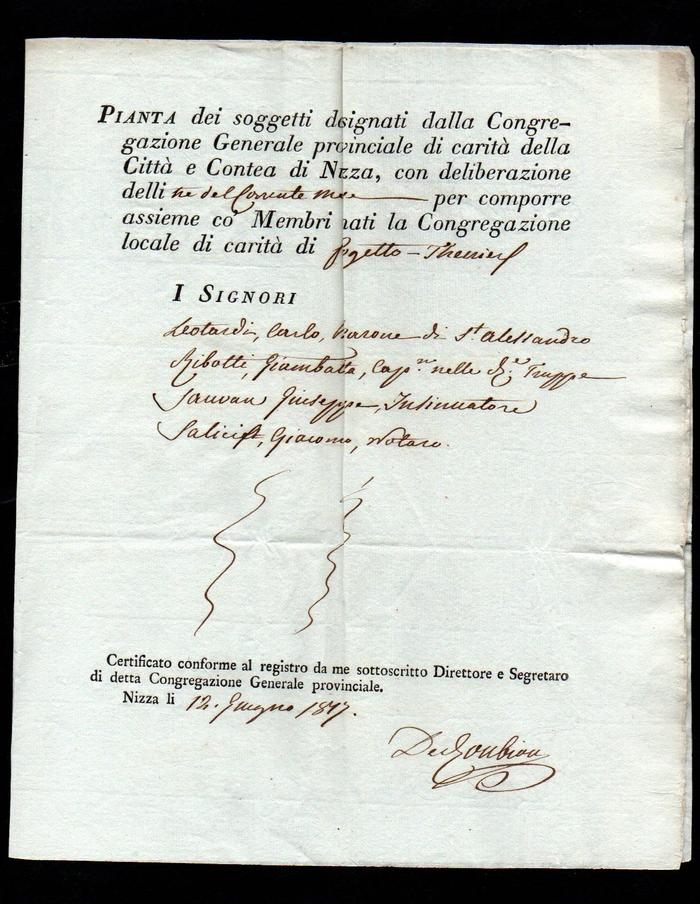 PIANTA dei soggetti dsignati dalla Congre-
gazione Generale provinciale di carità della
Città e Contea di Nizza, con deliberazione
delli tre del Corrente mese per comporre
assieme co' Membri nati la Congregazione
locale di carità di Pogetto-Theniers
I SIGNORI
Leotardi, Carlo, Barone di St. Alessandro
Ribotti, Giambatta, Cap.n nelle Truppe
Sauvan Giuseppe, Insinuatore
Giacomo, Notaro.
Certificato conforme al registro da me sottoscritto Direttore e Segretaro
di detta Congregazione Generale provinciale.
Nizza li 12. Giugno 1817.